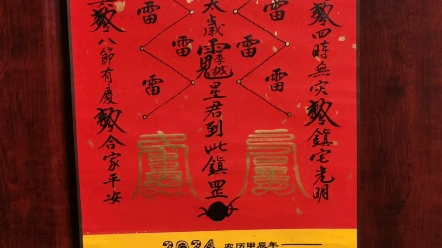 四時無灾
鎮宅光明
雷
雷
雷
太歲
李誠
星君到此鎮罡
雷
雷
雷
八節有慶
合家平安
2024 农历甲辰年